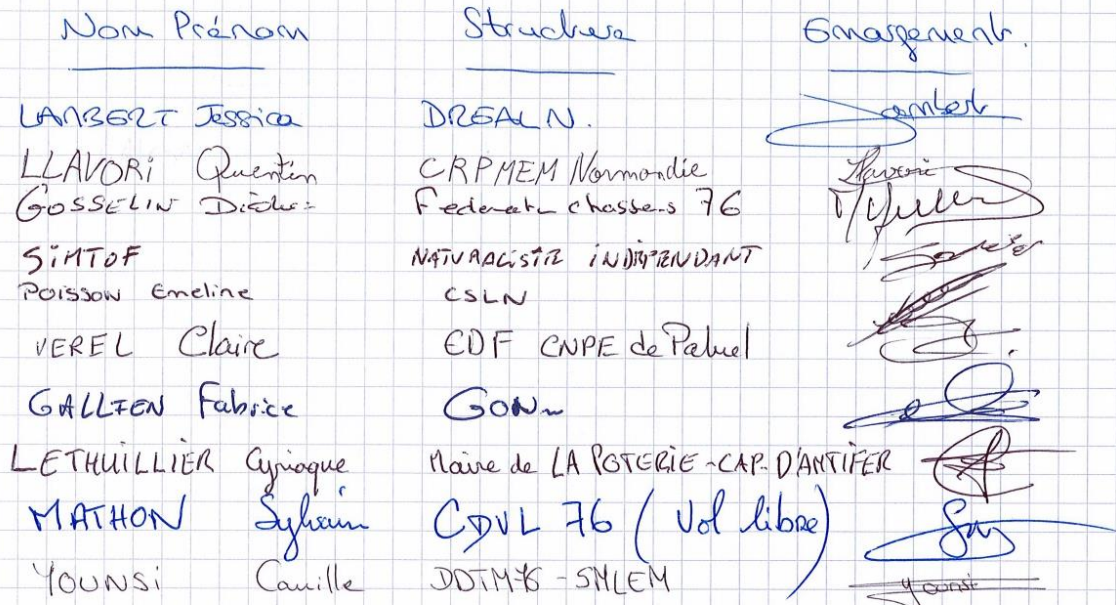 Nom Prénom Structure Emargement.
LAMBERT Jessica DREAL N. Lambert
LLAVORi Quentin CRPMEM Normandie Llavori
GOSSELIN Didier Federat chasseurs 76
SiMTOF NATURALISTE iNDÉPENDANT
POISSON Emeline CSLN
VEREL Claire EDF CNPE de Paluel
GALLIEN Fabrice GONm
LETHUILLIER Cyriaque Maire de LA POTERIE-CAP-D'ANTIFER
MATHON Sylvain CDVL 76 (Vol libre)
YOUNSi Camille DDTM76 - SMLEM Younsi